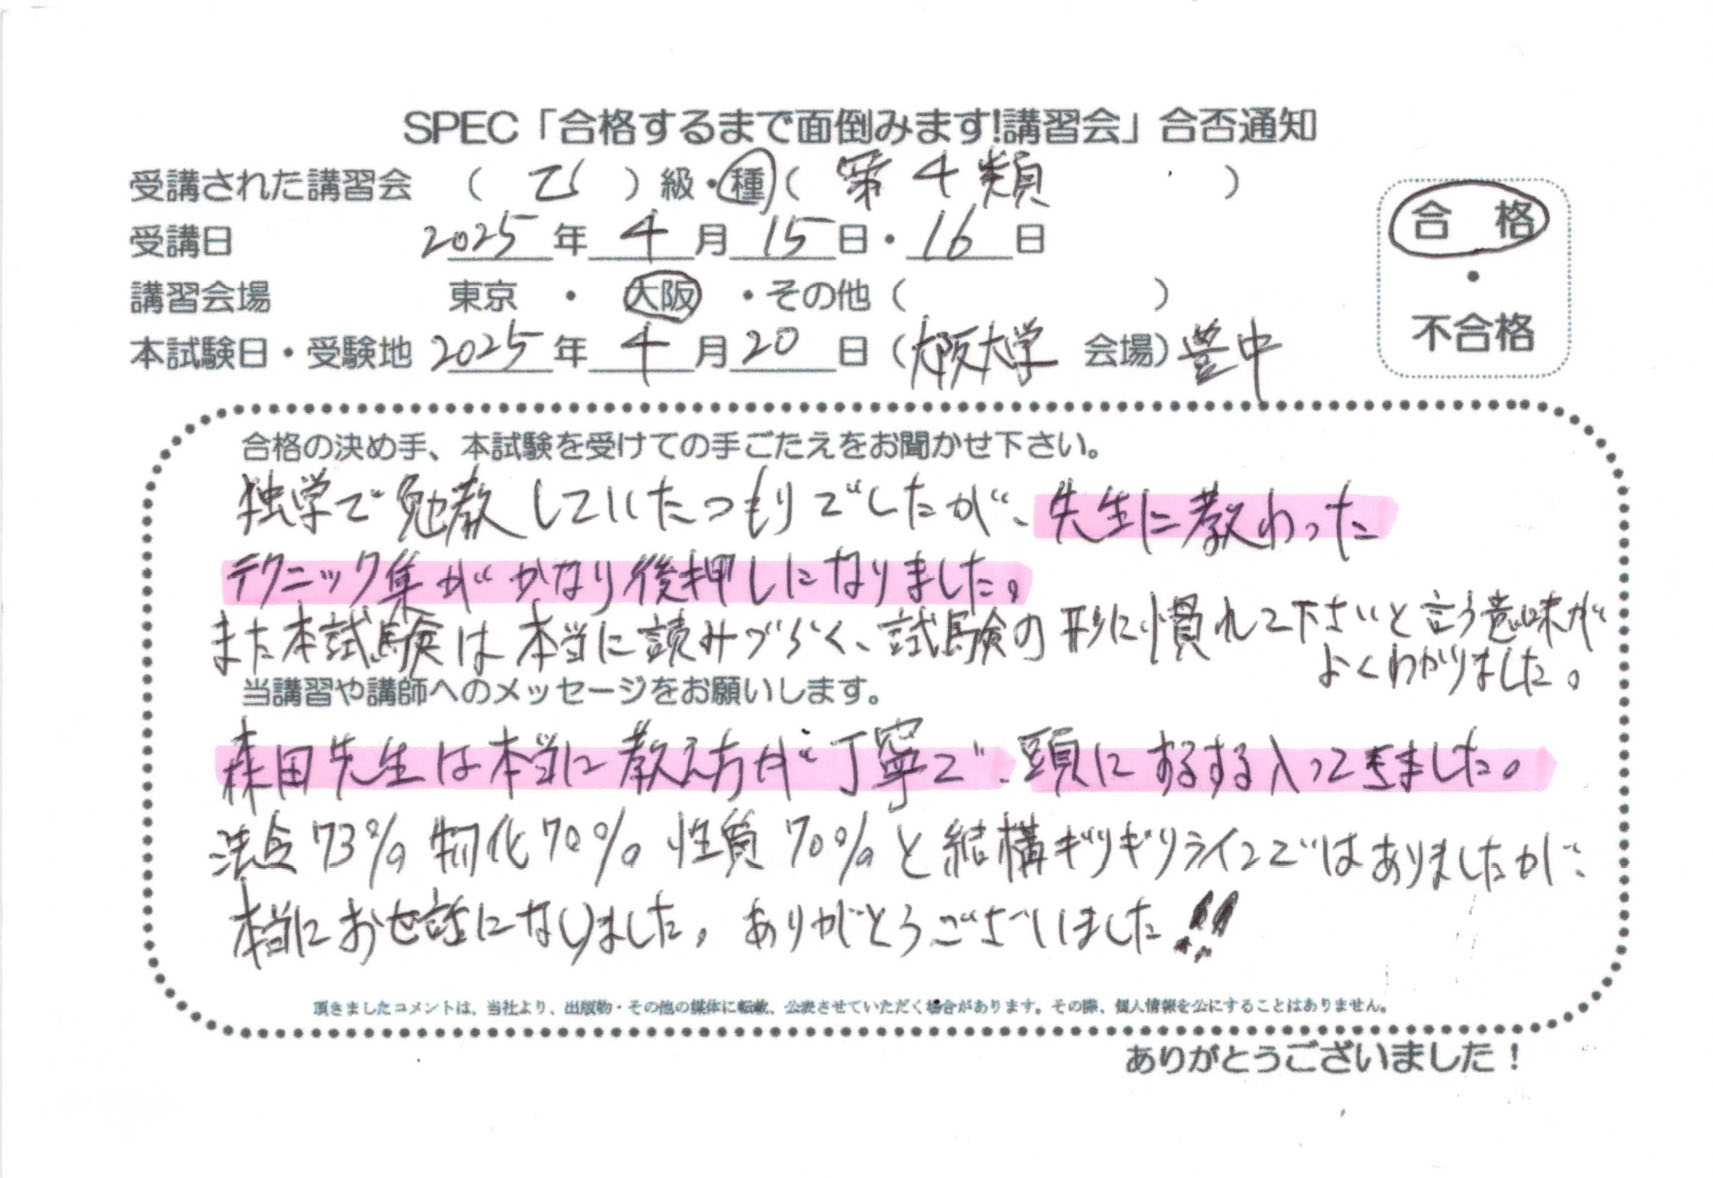 SPEC「合格するまで面倒みます!講習会」合否通知
受講された講習会 ( 乙 ) 級・種 ( 第4類 )
受講日 2025年4月15日・16日
講習会場 東京 ・ 大阪 ・その他 ( )
本試験日・受験地 2025年4月20日 (大阪大学 会場) 豊中
合格
・
不合格
合格の決め手、本試験を受けての手ごたえをお聞かせ下さい。
独学で勉教していたつもりでしたが、先生に教わった
テクニック集がかなり後押しになりました。
また本試験は本当に読みづらく、試験の形に慣れて下さいと言う意味が
よくわかりました。
当講習や講師へのメッセージをお願いします。
森田先生は本当に教え方が丁寧で、頭にするする入ってきました。
法令73%。物化70%。性質70%。と結構ギリギリラインではありましたが、
本当にお世話になりました。ありがとうございました!!
頂きましたコメントは、当社より、出版物・その他の媒体に転載、公表させていただく場合があります。その際、個人情報を公にすることはありません。
ありがとうございました！